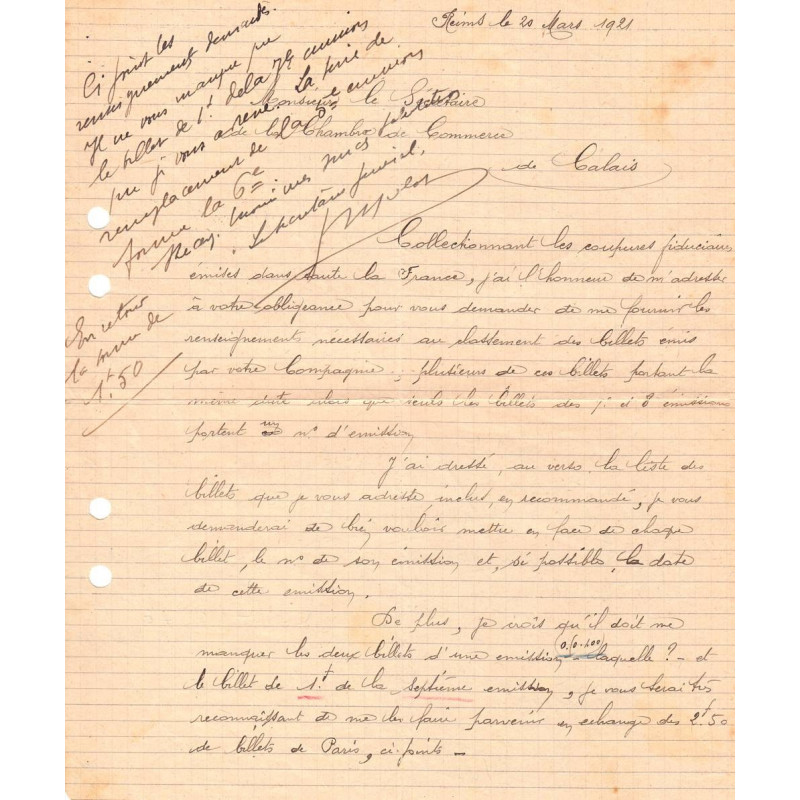 Reims le 20 Mars 1921
Ci joint les
renseignements demandés
Il ne vous manque que
le billet de 1f de la 7e émission
que je vous . La série de
remplacement de la 5e émission
forme la 6e
Recevez, Monsieur, mes
Le Secrétaire général,
En retour
la somme de
1f.50
Monsieur le Secrétaire
de la Chambre de Commerce
de Calais
Collectionnant les coupures fiduciaires
émises dans toute la France, j'ai l'honneur de m'adresser
à votre obligeance pour vous demander de me fournir les
renseignements nécessaires au classement des billets émis
par votre Compagnie ; plusieurs de ces billets portant la
même date alors que seuls les billets des 7 et 8 émissions
portent un n° d'emission
J'ai dressé, au verso, la liste des
billets que je vous adresse inclus, en recommandé, je vous
demanderai de bien vouloir mettre en face de chaque
billet, le n° de son émission et, si possible, la date
de cette emission.
De plus, je crois qu'il doit me
manquer les deux billets d'une emission (0.50-1.00) laquelle ? - et
le billet de 1.f de la septième emission, je vous serai très
reconnaissant de me les faire parvenir en echange des 2f.50
de billets de Paris, ci-joints -